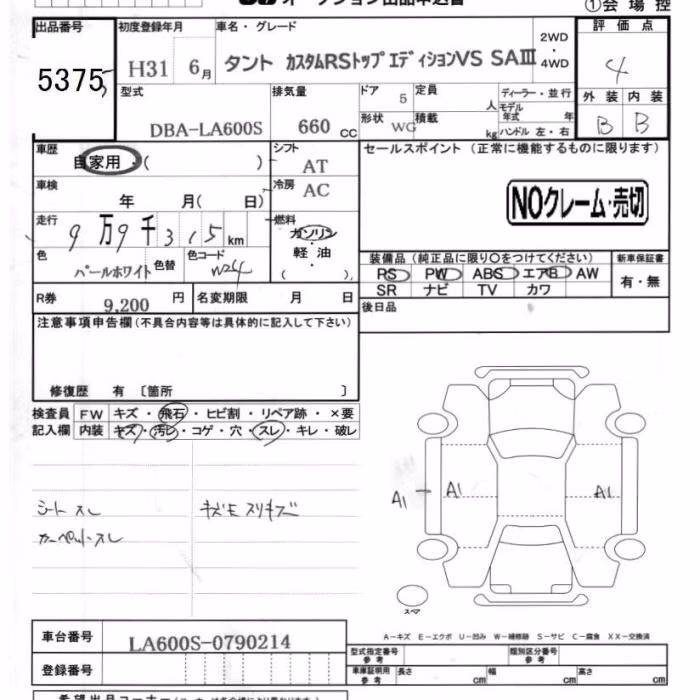 オークション出品申込書
①会場控
出品番号 初度登録年月 車名・グレード 評価点
5375 H31 6月 タント カスタムRSトップエディションVS SAⅢ 2WD・4WD 4
型式 排気量 ドア 定員 ディーラー・並行 外装 内装
DBA-LA600S 660cc 5 人 モデル年式 年 B B
形状 積載
WG kg ハンドル 左・右
車歴 シフト セールスポイント (正常に機能するものに限ります)
自家用・( ) AT
車検 冷房
年 月( 日) AC
NOクレーム・売切
走行 燃料
9万9千315km ガソリン・軽油・( )
色 色替 色コード
パールホワイト W24
装備品(純正品に限り○をつけてください) 新車保証書
PS PW ABS エアB AW 有・無
SR ナビ TV カワ
R券 9,200円 名変期限 月 日 後日品
注意事項申告欄(不具合内容等は具体的に記入して下さい)
修復歴 有 〔箇所 〕
検査員 FW キズ・飛石・ヒビ割・リペア跡・×要
記入欄 内装 キズ・汚レ・コゲ・穴・スレ・キレ・破レ
シートスレ キズモスリキズ
カーペットスレ
A1 A1 A1
スペア
A-キズ E-エクボ U-凹み W-補修跡 S-サビ C-腐食 XX-交換済
車台番号 LA600S-0790214
型式指定番号 参考 類別区分番号 参考
登録番号
車庫証明用 参考 長さ cm 幅 cm 高さ cm